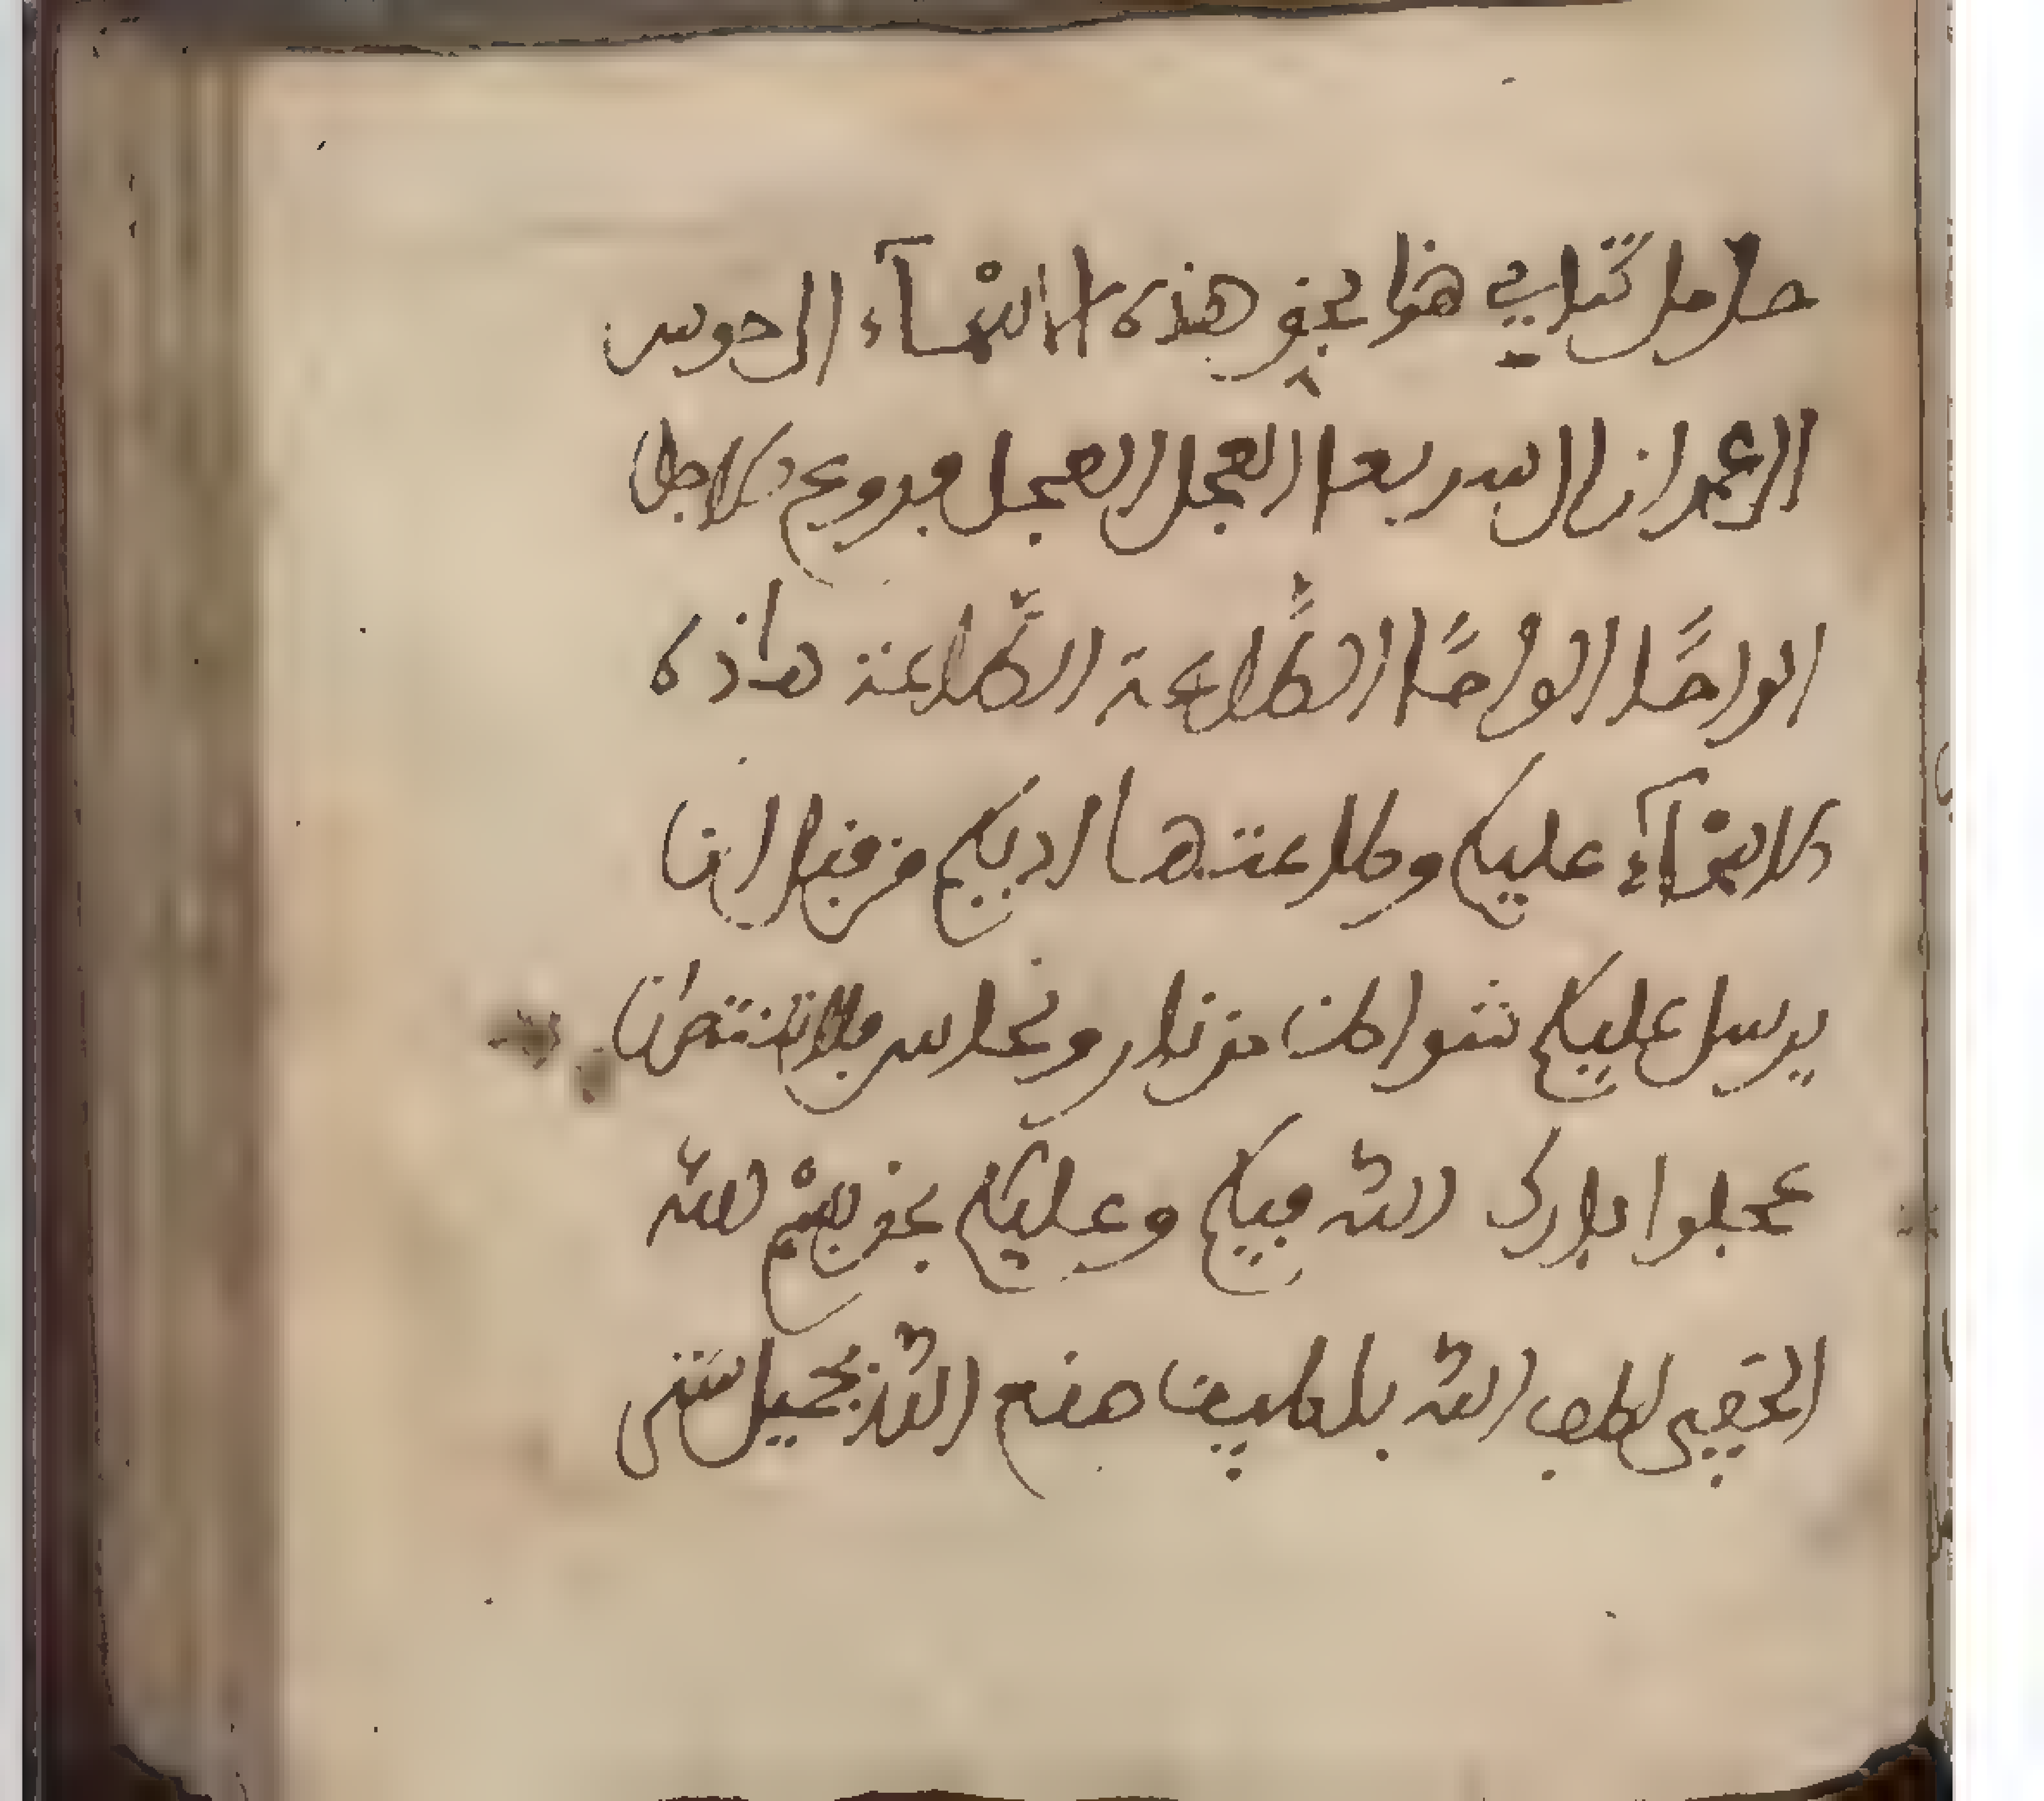 حامل كتابي هذا بحق هذه الاسمآء
العجل العجل
الواحًا الواحًا الطاعة الطاعة هاذه
الاسمآء عليكم وطاعتها لديكم من قبل ان
يرسل عليكم شواظ من نار ونحاس فلا تنتصران
عجلوا بارك الله فيكم وعليكم بحق بسم الله
لطف الله بلطيف صنع الله بجميل ستر